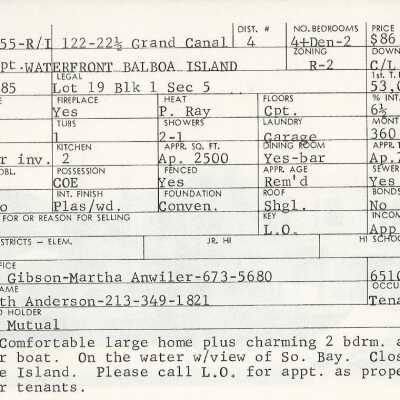 DIST. # NO.BEDROOMS PRICE
55-R/I 122-22½ Grand Canal 4 4+Den-2 $86
ZONING DOWN
pt. WATERFRONT BALBOA ISLAND R-2 C/L
LEGAL 1st. T.
85 Lot 19 Blk 1 Sec 5 53,0
FIREPLACE HEAT FLOORS % INT.
Yes P. Ray Cpt. 6½
TUBS SHOWERS LAUNDRY MONT
1 2-1 Garage 360
KITCHEN APPR. SQ. FT. DINING ROOM APPR. T
r inv. 2 Ap. 2500 Yes-bar Ap.
OBL. POSSESSION FENCED APP. AGE SEWER
COE Yes Rem'd Yes
INT. FINISH FOUNDATION ROOF BONDS
o Plas/wd. Conven. Shgl. No
FOR OR REASON FOR SELLING KEY INCOM
L.O. App
STRICTS – ELEM. JR. HI HI SCHOO
FFICE
Gibson-Martha Anwiler-673-5680 6510
NAME OCCU
th Anderson-213-349-1821 Tena
D HOLDER
Mutual
Comfortable large home plus charming 2 bdrm. a
r boat. On the water w/view of So. Bay. Clos
e Island. Please call L.O. for appt. as prope
r tenants.